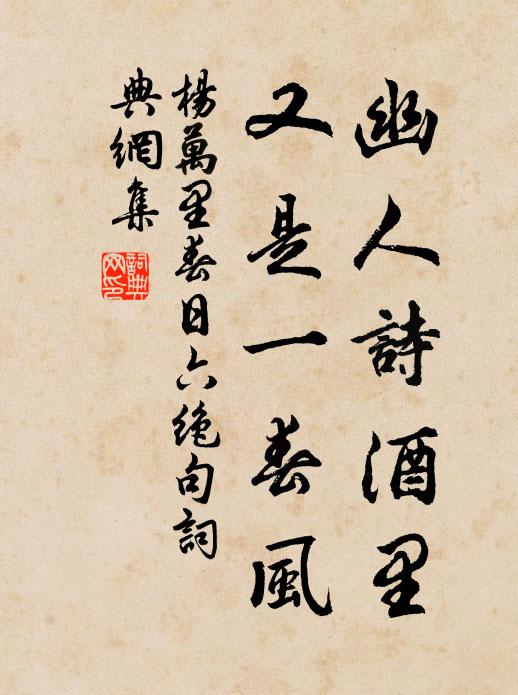 幽人詩酒里
又是一春風
楊萬里春日六絕句詞
典網集
詞典
网印